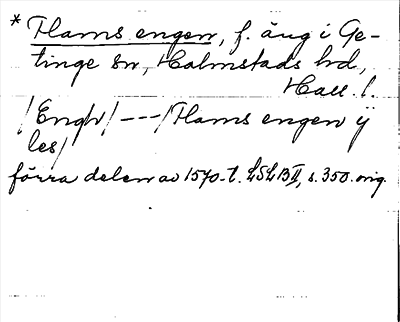 * Flams engen, f. äng i Ge-
tinge sn, Halmstads hd,
Hall. l.
/Engh/ --- /Flams engen ÿ
les/
förra delen av 1570-t. LSLB II, s. 350. orig.